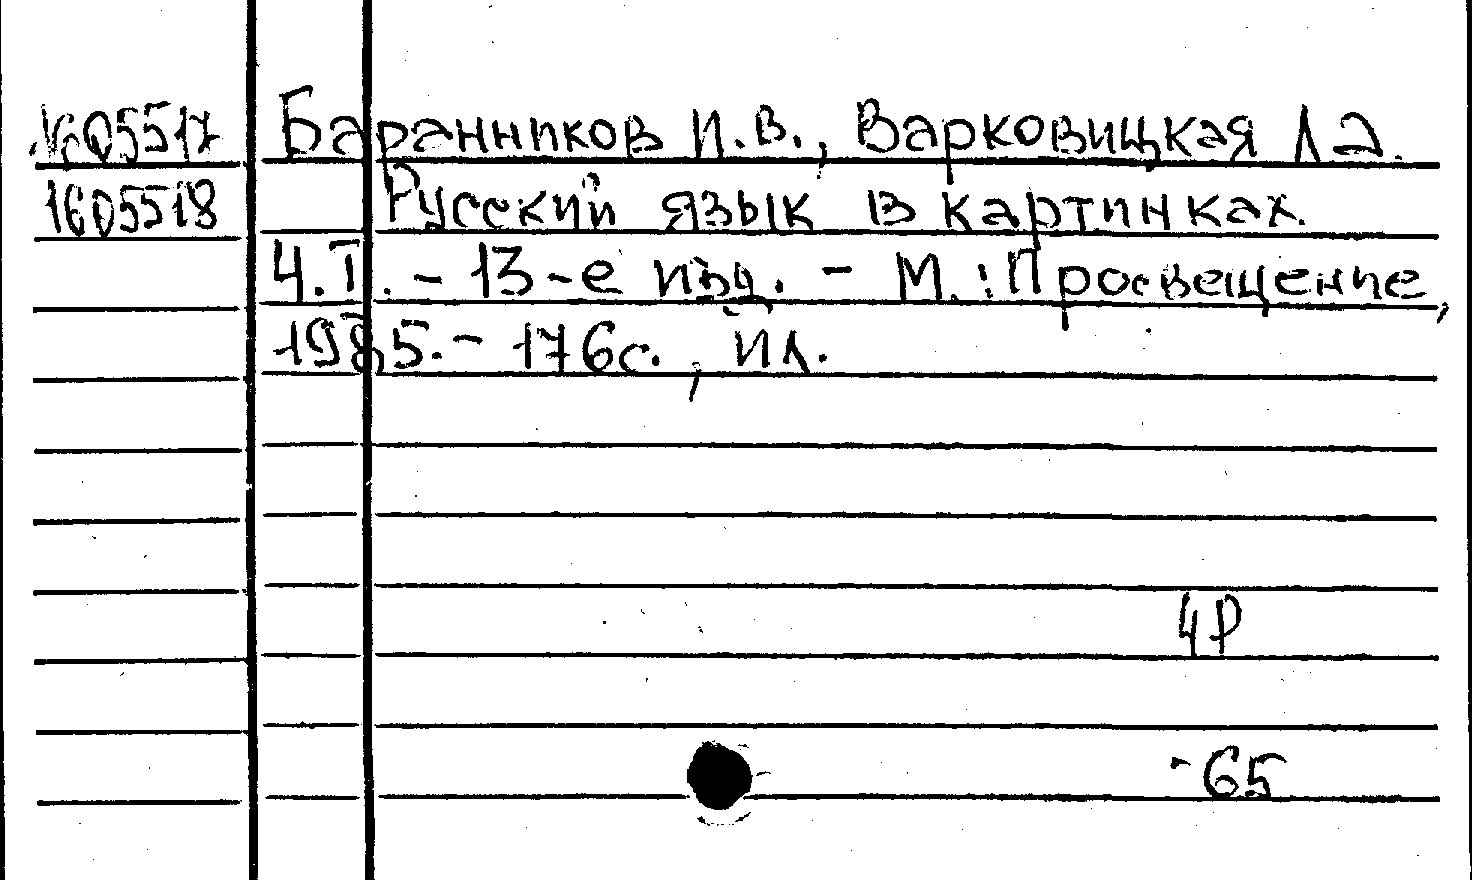 1605517 Баранников И.В., Варковицкая Л.А.
1605518 Русский язык в картинках.
Ч.I. - 13-е изд. - М.: Просвещение,
1985. - 176с., ил.
4Р
-65